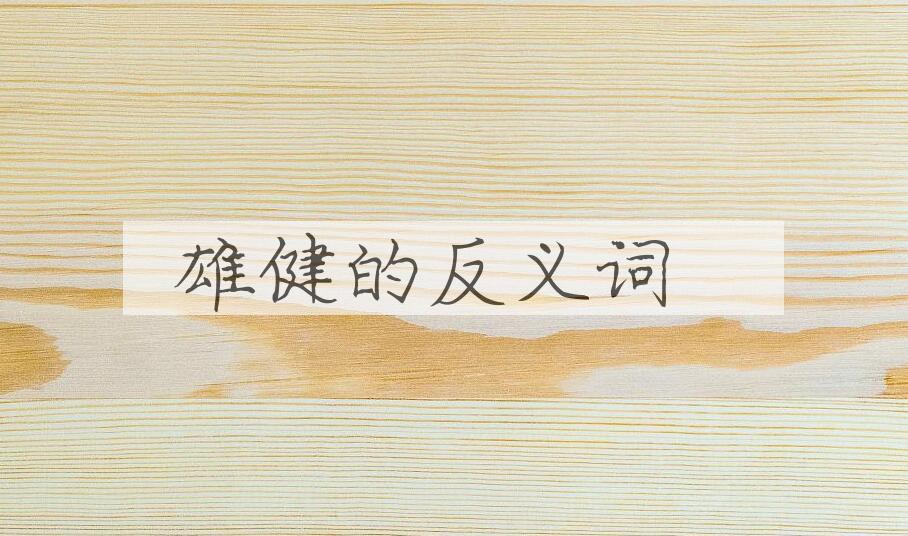 雄健的反义词